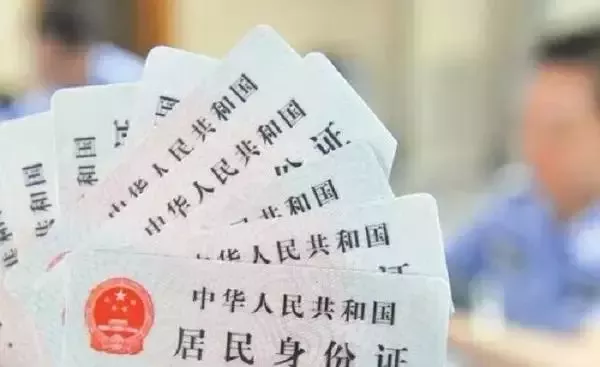 中华人民共和国
中华人民共和国
份证
和国
中华人民共和国
中华人民共和国
居民身份证